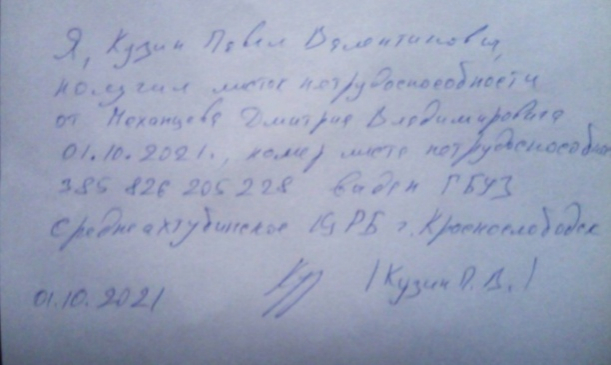 Я, Кузин Павел Валентинович,
получил листок нетрудоспособности
от Моханцева Дмитрия Владимировича
01.10.2021., номер листа нетрудоспособно
385 826 205 228 выдан ГБУЗ
Среднеахтубинское ЦРБ г. Краснослободск
01.10.2021 /Кузин П.В./